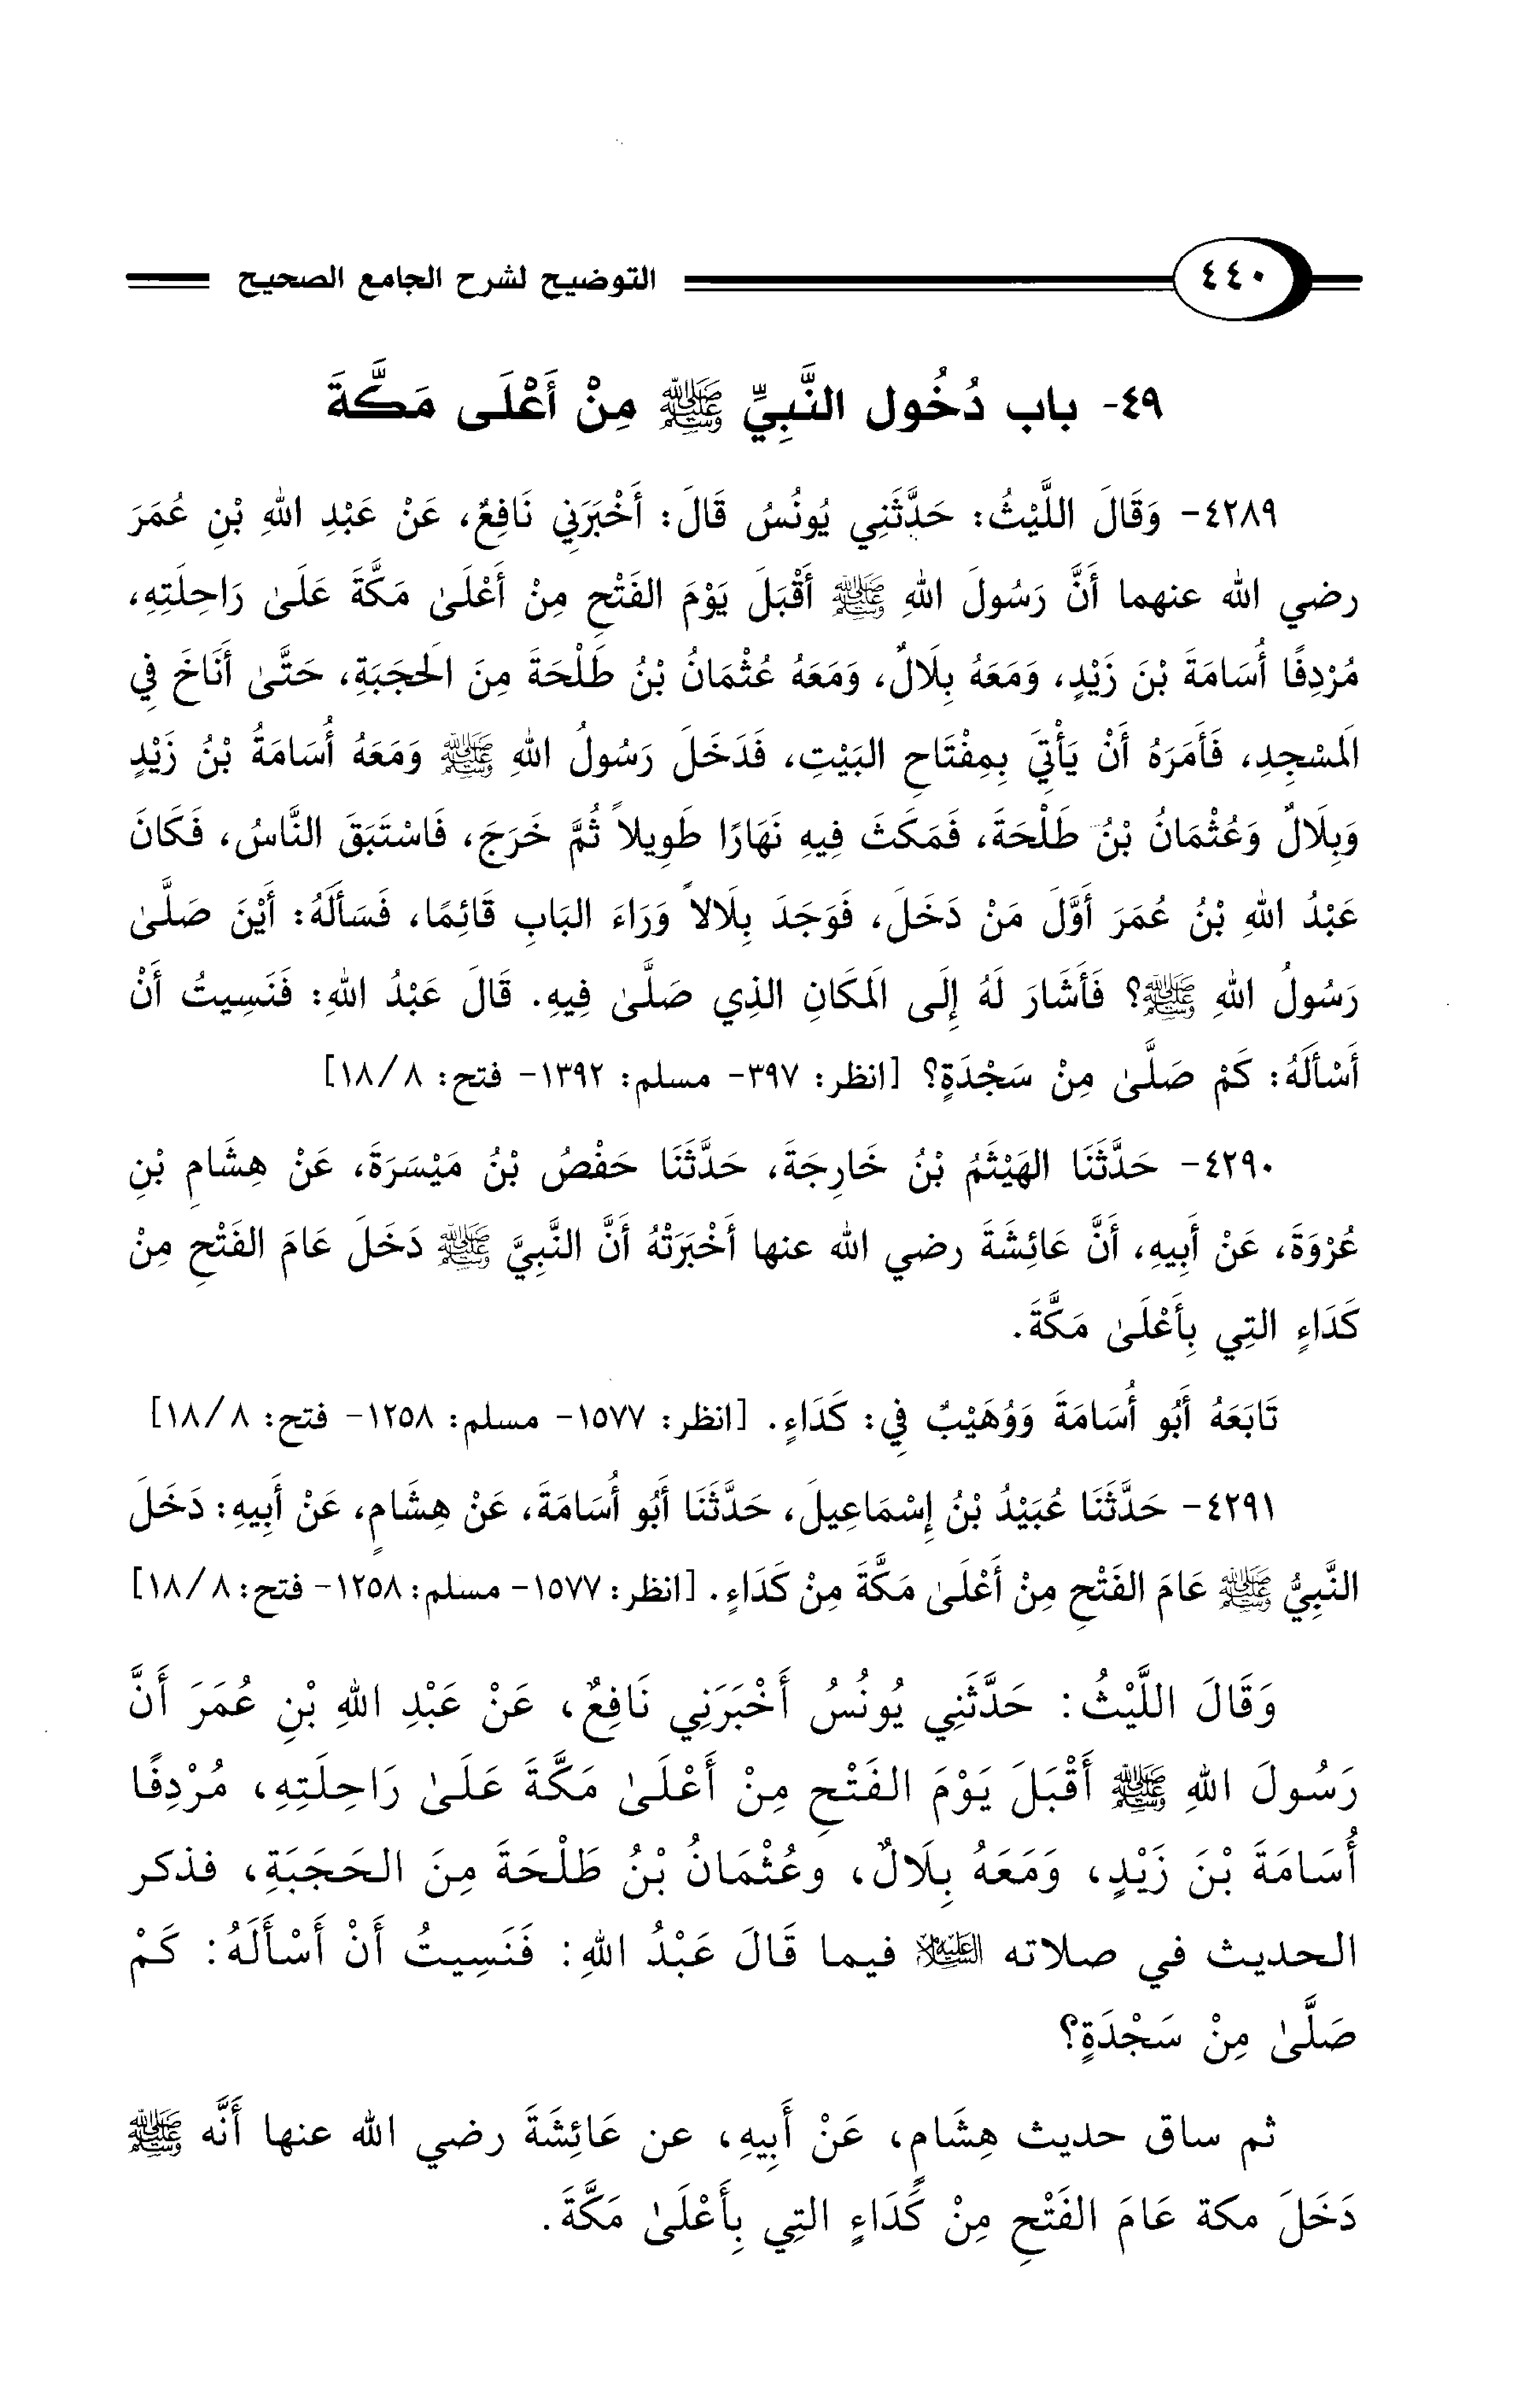 ٤٤٠ التوضيح لشرح الجامع الصحيح
٤٩- باب دُخُول النَّبِيِّ ﷺ مِنْ أَعْلَى مَكَّةَ
٤٢٨٩- وَقَالَ اللَّيْثُ: حَدَّثَنِي يُونُسُ قَالَ: أَخْبَرَنِي نَافِعٌ، عَنْ عَبْدِ اللهِ بْنِ عُمَرَ
رضي الله عنهما أَنَّ رَسُولَ اللهِ ﷺ أَقْبَلَ يَوْمَ الفَتْحِ مِنْ أَعْلَىٰ مَكَّةَ عَلَىٰ رَاحِلَتِهِ،
مُرْدِفًا أُسَامَةَ بْنَ زَيْدٍ، وَمَعَهُ بِلَالٌ، وَمَعَهُ عُثْمَانُ بْنُ طَلْحَةَ مِنَ الَحجَبَةِ، حَتَّىٰ أَنَاخَ فِي
الَمسْجِدِ، فَأَمَرَهُ أَنْ يَأْتِيَ بِمِفْتَاحِ البَيْتِ، فَدَخَلَ رَسُولُ اللهِ ﷺ وَمَعَهُ أُسَامَةُ بْنُ زَيْدٍ
وَبِلَالٌ وَعُثْمَانُ بْنُ طَلْحَةَ، فَمَكَثَ فِيهِ نَهَارًا طَوِيلاً ثُمَّ خَرَجَ، فَاسْتَبَقَ النَّاسُ، فَكَانَ
عَبْدُ اللهِ بْنُ عُمَرَ أَوَّلَ مَنْ دَخَلَ، فَوَجَدَ بِلَالاً وَرَاءَ البَابِ قَائِمًا، فَسَأَلَهُ: أَيْنَ صَلَّىٰ
رَسُولُ اللهِ ﷺ؟ فَأَشَارَ لَهُ إِلَى الَمكَانِ الذِي صَلَّىٰ فِيهِ. قَالَ عَبْدُ اللهِ: فَنَسِيتُ أَنْ
أَسْأَلَهُ: كَمْ صَلَّىٰ مِنْ سَجْدَةٍ؟ [انظر: ٣٩٧- مسلم: ١٣٩٢- فتح: ١٨/٨]
٤٢٩٠- حَدَّثَنَا الهَيْثَمُ بْنُ خَارِجَةَ، حَدَّثَنَا حَفْصُ بْنُ مَيْسَرَةَ، عَنْ هِشَامِ بْنِ
عُرْوَةَ، عَنْ أَبِيهِ، أَنَّ عَائِشَةَ رضي الله عنها أَخْبَرَتْهُ أَنَّ النَّبِيَّ ﷺ دَخَلَ عَامَ الفَتْحِ مِنْ
كَدَاءٍ التِي بِأَعْلَىٰ مَكَّةَ.
تَابَعَهُ أَبُو أُسَامَةَ وَوُهَيْبٌ فِي: كَدَاءٍ. [انظر: ١٥٧٧- مسلم: ١٢٥٨- فتح: ١٨/٨]
٤٢٩١- حَدَّثَنَا عُبَيْدُ بْنُ إِسْمَاعِيلَ، حَدَّثَنَا أَبُو أُسَامَةَ، عَنْ هِشَامٍ، عَنْ أَبِيهِ: دَخَلَ
النَّبِيُّ ﷺ عَامَ الفَتْحِ مِنْ أَعْلَىٰ مَكَّةَ مِنْ كَدَاءٍ. [انظر: ١٥٧٧- مسلم: ١٢٥٨- فتح: ١٨/٨]
وَقَالَ اللَّيْثُ: حَدَّثَنِي يُونُسُ أَخْبَرَنِي نَافِعٌ، عَنْ عَبْدِ اللهِ بْنِ عُمَرَ أَنَّ
رَسُولَ اللهِ ﷺ أَقْبَلَ يَوْمَ الفَتْحِ مِنْ أَعْلَىٰ مَكَّةَ عَلَىٰ رَاحِلَتِهِ، مُرْدِفًا
أُسَامَةَ بْنَ زَيْدٍ، وَمَعَهُ بِلَالٌ، وعُثْمَانُ بْنُ طَلْحَةَ مِنَ الحَجَبَةِ، فذكر
الحديث في صلاته العَلَيْهِ السَّلَام فيما قَالَ عَبْدُ اللهِ: فَنَسِيتُ أَنْ أَسْأَلَهُ: كَمْ
صَلَّىٰ مِنْ سَجْدَةٍ؟
ثم ساق حديث هِشَامٍ، عَنْ أَبِيهِ، عن عَائِشَةَ رضي الله عنها أَنَّه ﷺ
دَخَلَ مكة عَامَ الفَتْحِ مِنْ كَدَاءٍ التِي بِأَعْلَىٰ مَكَّةَ.